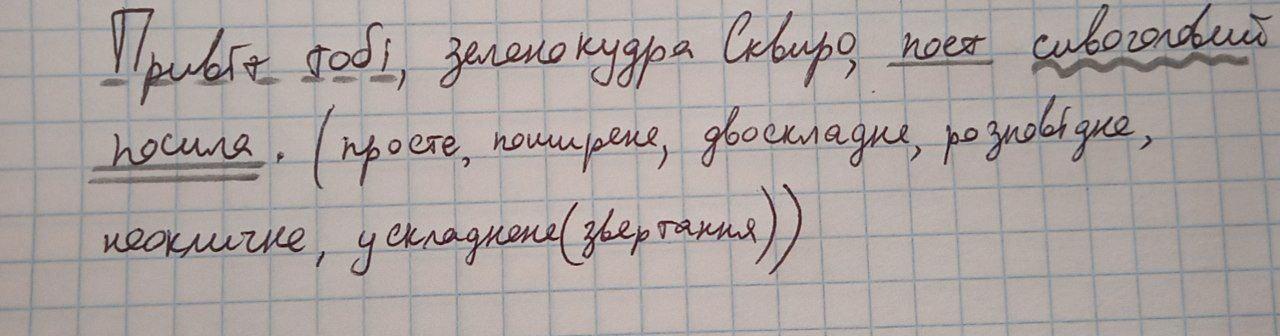 Привіт тобі, зеленокудра Сквиро, поет сивоголовий
посила. (просте, поширене, двоскладне, розповідне,
неокличне, ускладнене(звертання))